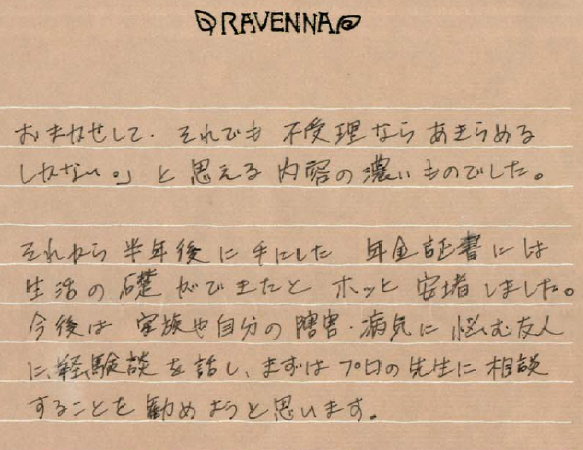 RAVENNA
おまかせして、それでも 不受理なら あきらめる
しかない。」と 思える 内容の 濃い ものでした。
それから 半年後 に 手にした 年金証書 には
生活の 礎 ができたと ホッと 安堵しました。
今後は 家族や自分の 障害・病気に 悩む友人
に、経験談 を 話し、まずは プロの 先生に 相談
することを 勧めようと思います。